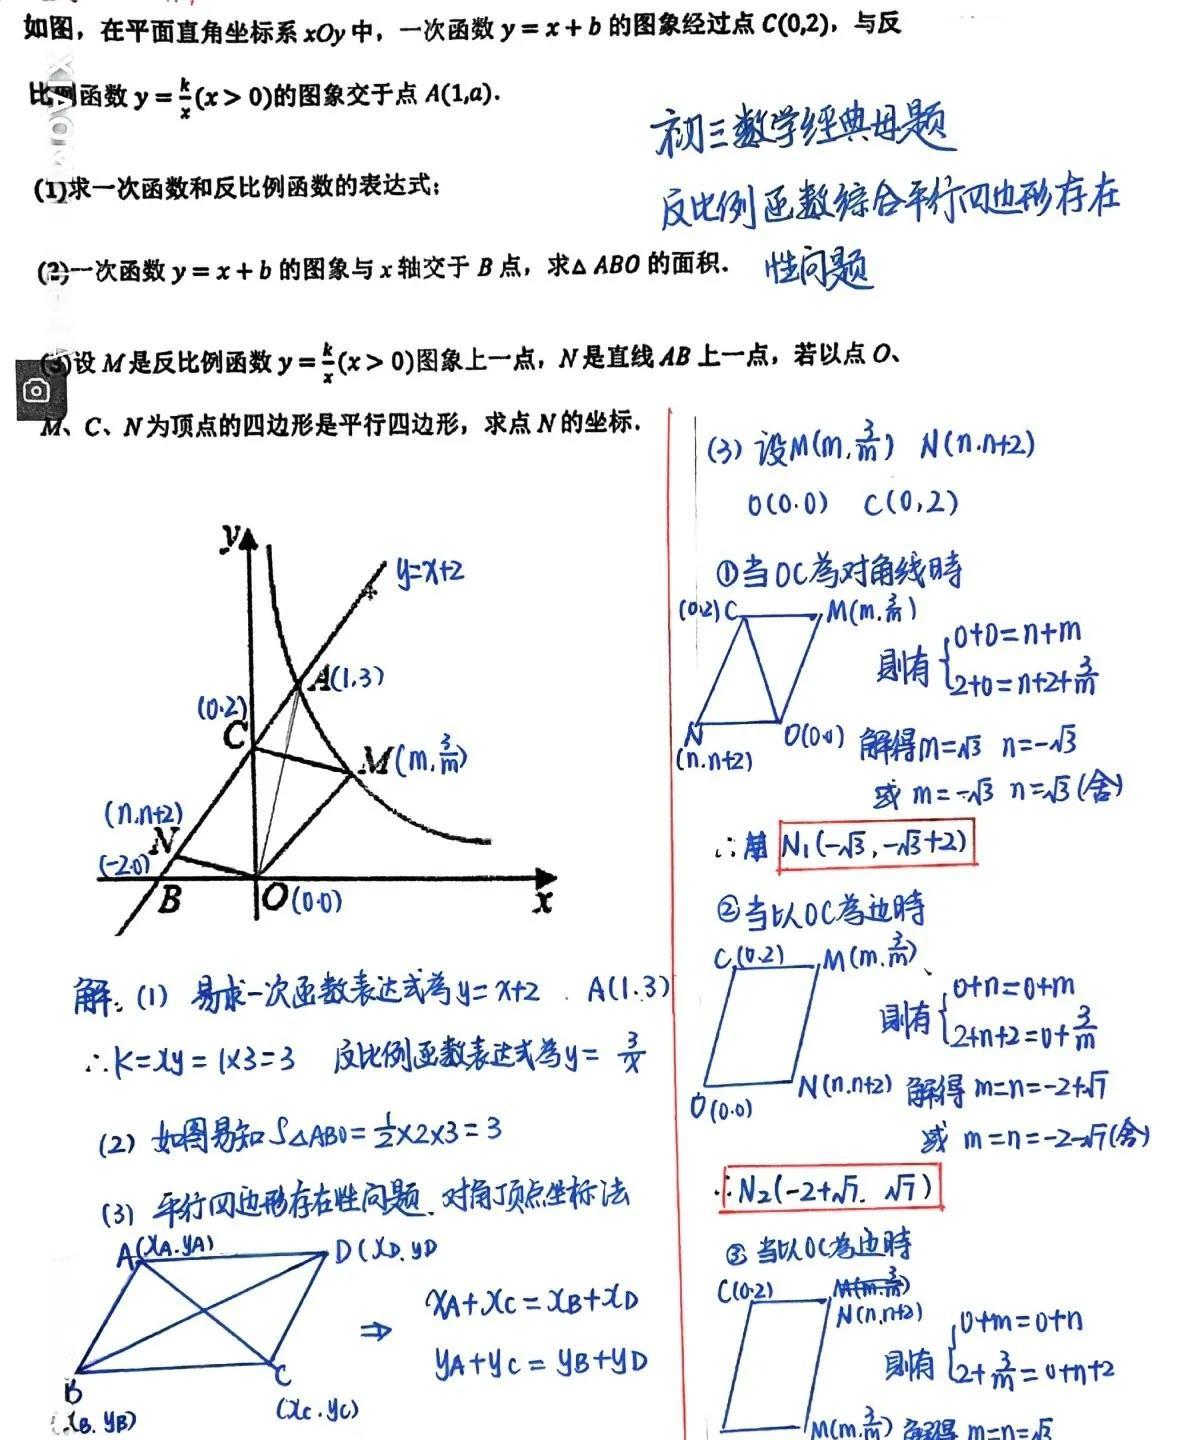 如图，在平面直角坐标系 xOy 中，一次函数 y = x + b 的图象经过点 C(0,2)，与反
比例函数 y = k/x (x > 0)的图象交于点 A(1,a).
(1)求一次函数和反比例函数的表达式；
(2)一次函数 y = x + b 的图象与 x 轴交于 B 点，求△ ABO 的面积.
(3)设 M 是反比例函数 y = k/x (x > 0)图象上一点，N 是直线 AB 上一点，若以点 O、
M、C、N 为顶点的四边形是平行四边形，求点 N 的坐标.
初三数学经典母题
反比例函数综合平行四边形存在
性问题
y
y=x+2
A(1.3)
(0.2)
C
M(m, 3/m)
(n.n+2)
N
(-2.0)
B
O(0.0)
x
解：(1) 易求一次函数表达式为y=x+2 . A(1.3)
∴k=xy=1×3=3 反比例函数表达式为y= 3/x
(2) 如图易知 S△ABO= 1/2×2×3=3
(3) 平行四边形存在性问题、对角顶点坐标法
A(xA.yA)
D(xD.yD
B
(xB.yB)
C
(xC.yC)
⇒
xA+xC=xB+xD
yA+yC=yB+yD
(3) 设M(m, 3/m) N(n.n+2)
O(0.0) C(0,2)
①当OC为对角线时
(0.2)C
M(m. 3/m)
N
(n.n+2)
O(0.0)
则有{0+0=n+m
2+0=n+2+3/m
解得m=√3 n=-√3
或 m=-√3 n=√3(舍)
∴ N₁(-√3,-√3+2)
②当以OC为边时
C(0.2)
M(m. 3/m)、
O(0.0)
N(n.n+2)
则有{0+n=0+m
2+n+2=0+3/m
解得 m=n=-2+√7
或 m=n=-2-√7(舍)
∴N₂(-2+√7. √7)
③当以OC为边时
C(0.2)
M(m. 3/m)
N(n.n+2)
则有{0+m=0+n
2+3/m=0+n+2
M(m. 3/m) 解得 m=n=√3